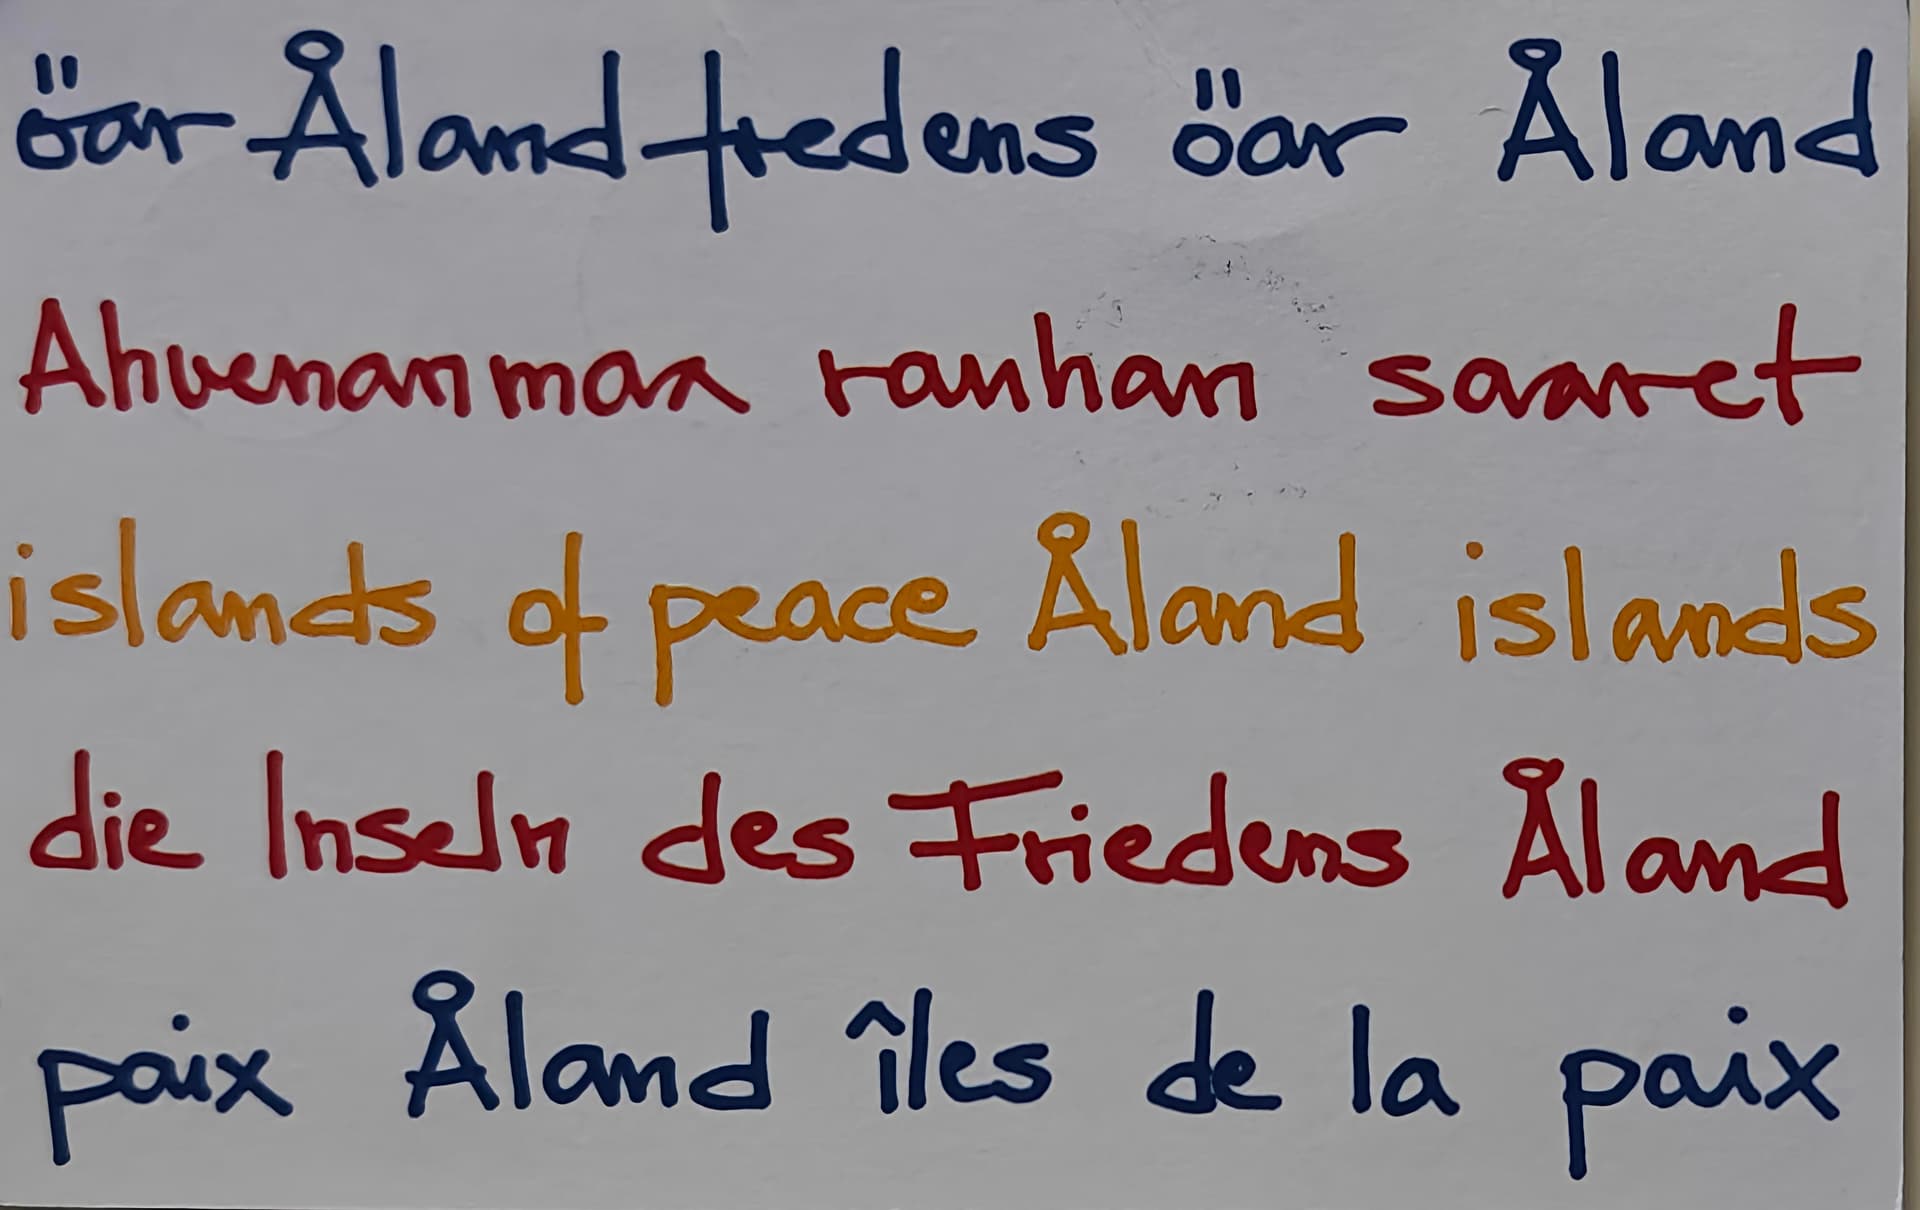 öar Åland fredens öar Åland
Ahvenanmaa rauhan saaret
islands of peace Åland islands
die Inseln des Friedens Åland
paix Åland îles de la paix